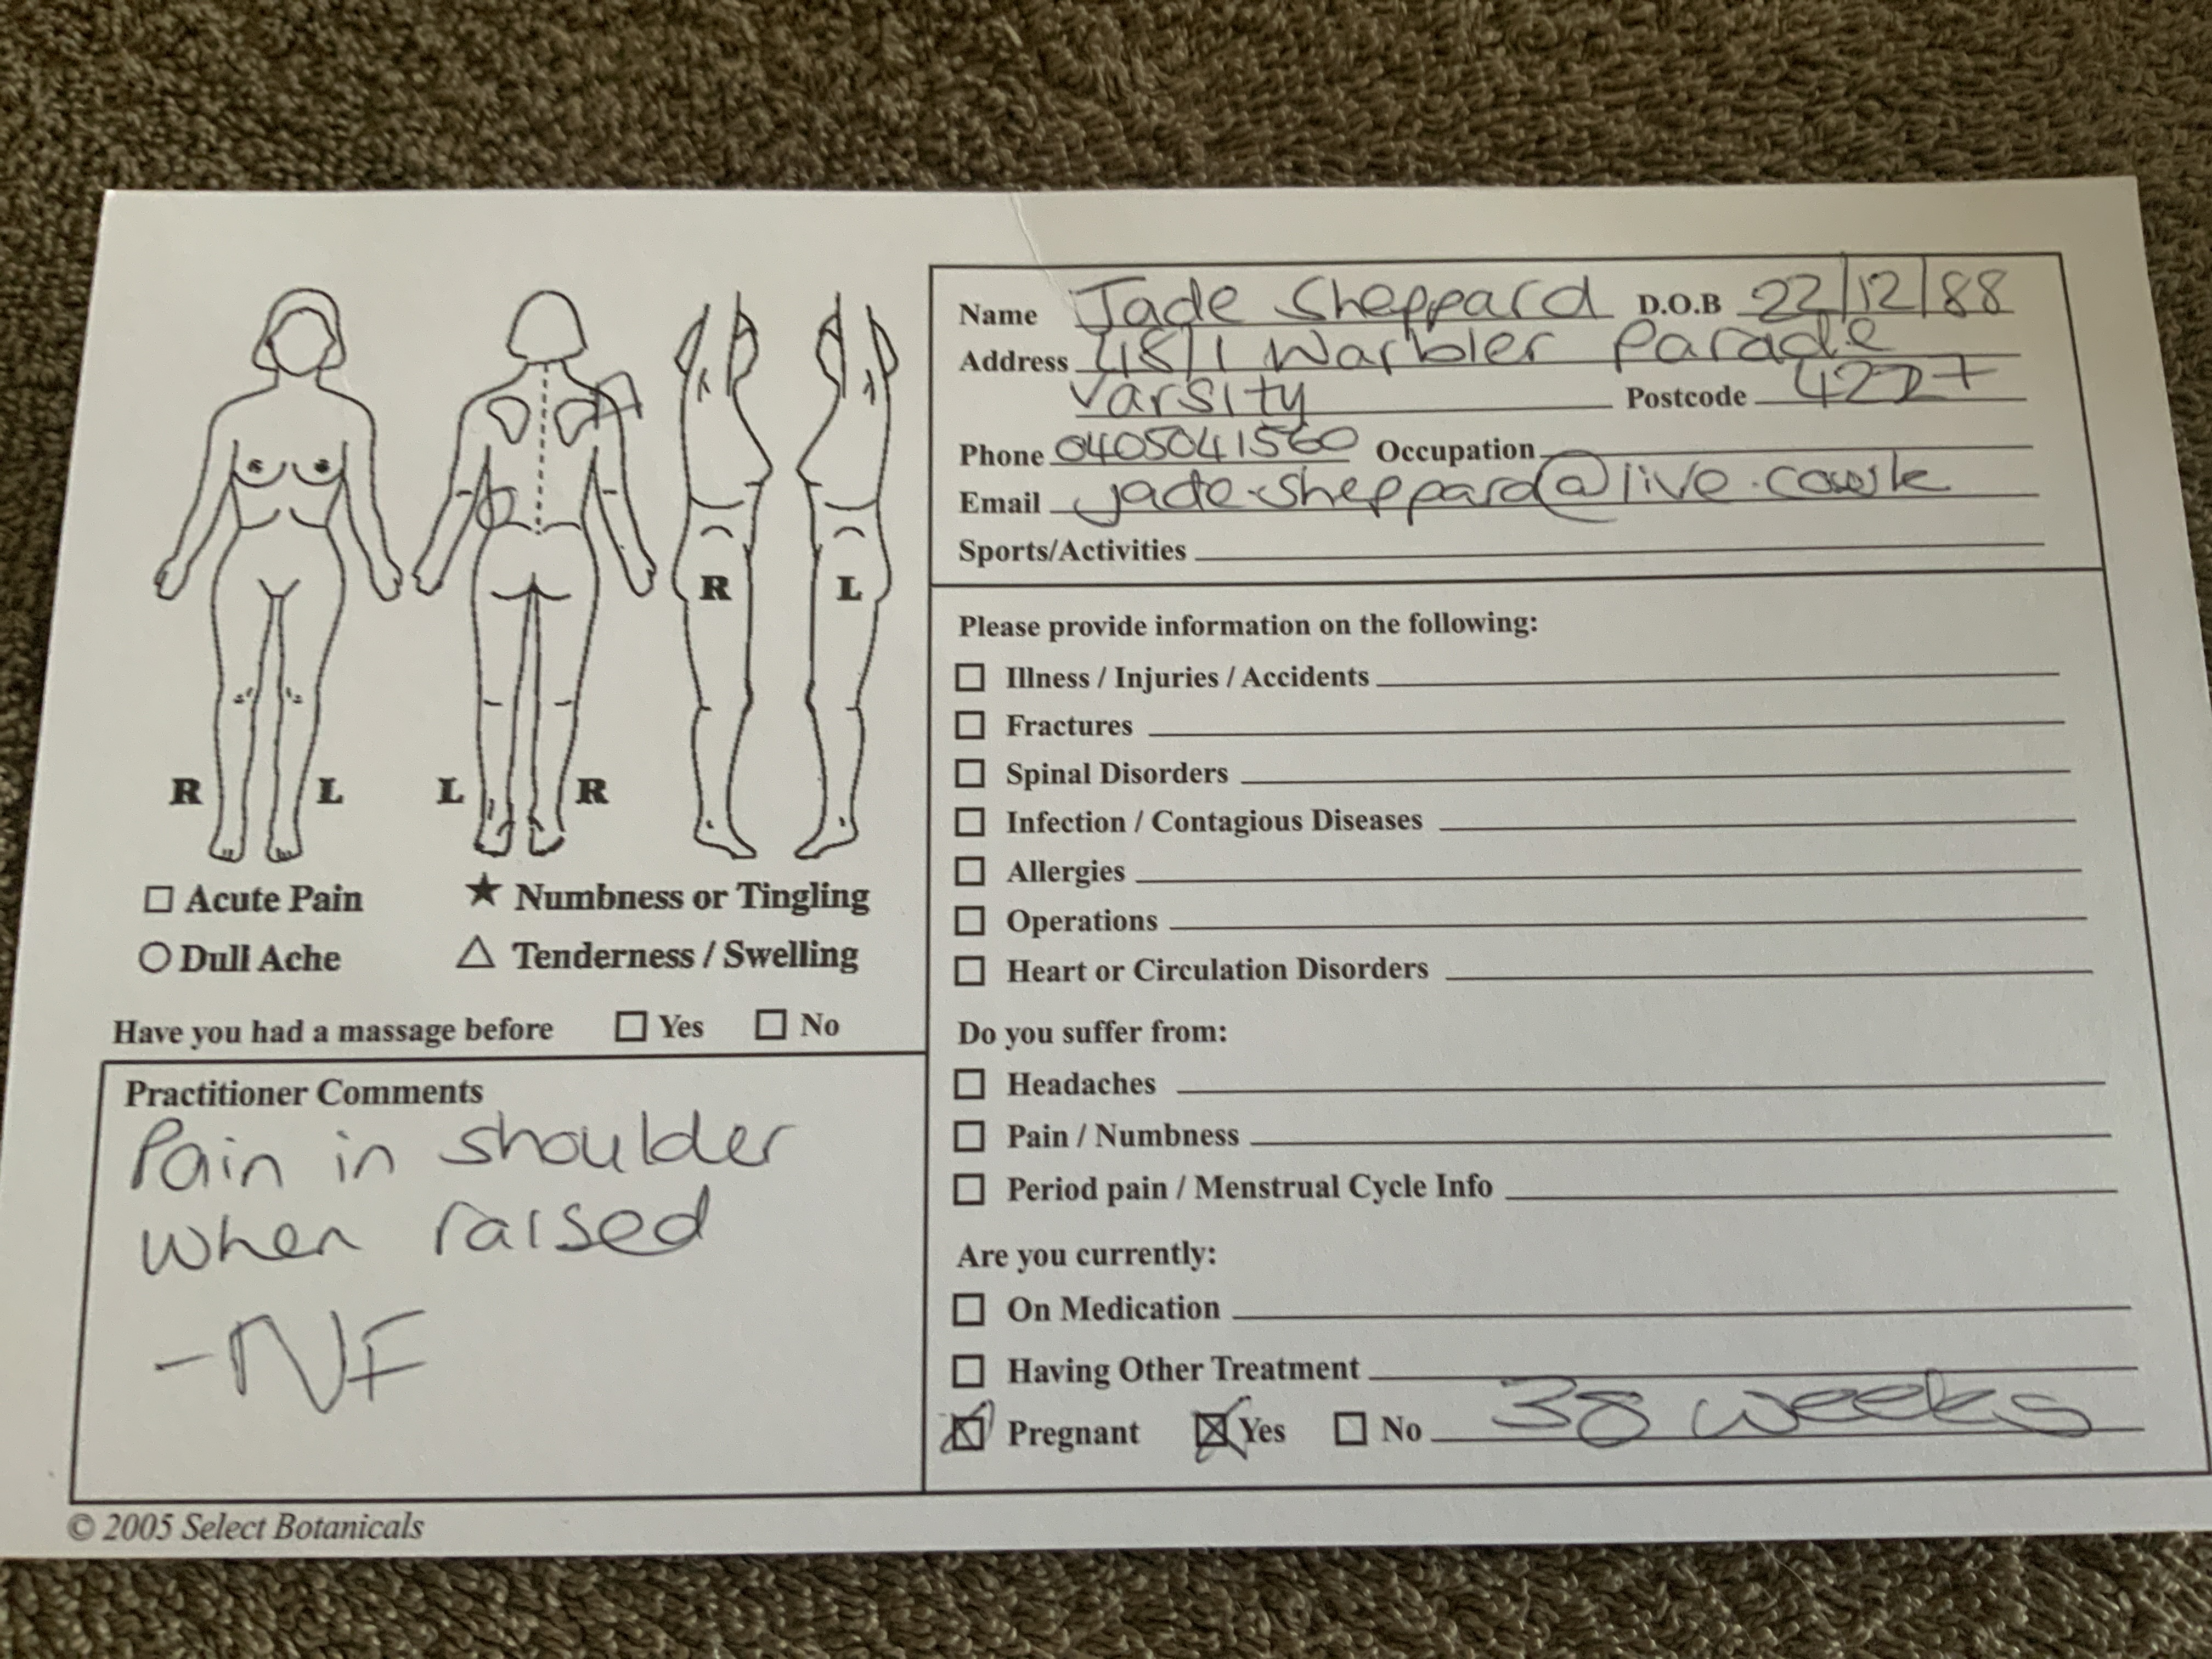 R L L R R L
□ Acute Pain ★ Numbness or Tingling
○ Dull Ache △ Tenderness / Swelling
Have you had a massage before □ Yes □ No
Practitioner Comments
Pain in shoulder
when raised
-NF
Name Jade Sheppard D.O.B 22/12/88
Address 48/1 Warbler Parade
Varsity Postcode 4227
Phone 0405041560 Occupation
Email jade-sheppard@live.co.uk
Sports/Activities
Please provide information on the following:
□ Illness / Injuries / Accidents
□ Fractures
□ Spinal Disorders
□ Infection / Contagious Diseases
□ Allergies
□ Operations
□ Heart or Circulation Disorders
Do you suffer from:
□ Headaches
□ Pain / Numbness
□ Period pain / Menstrual Cycle Info
Are you currently:
□ On Medication
□ Having Other Treatment
☒ Pregnant ☒ Yes □ No 38 weeks
© 2005 Select Botanicals